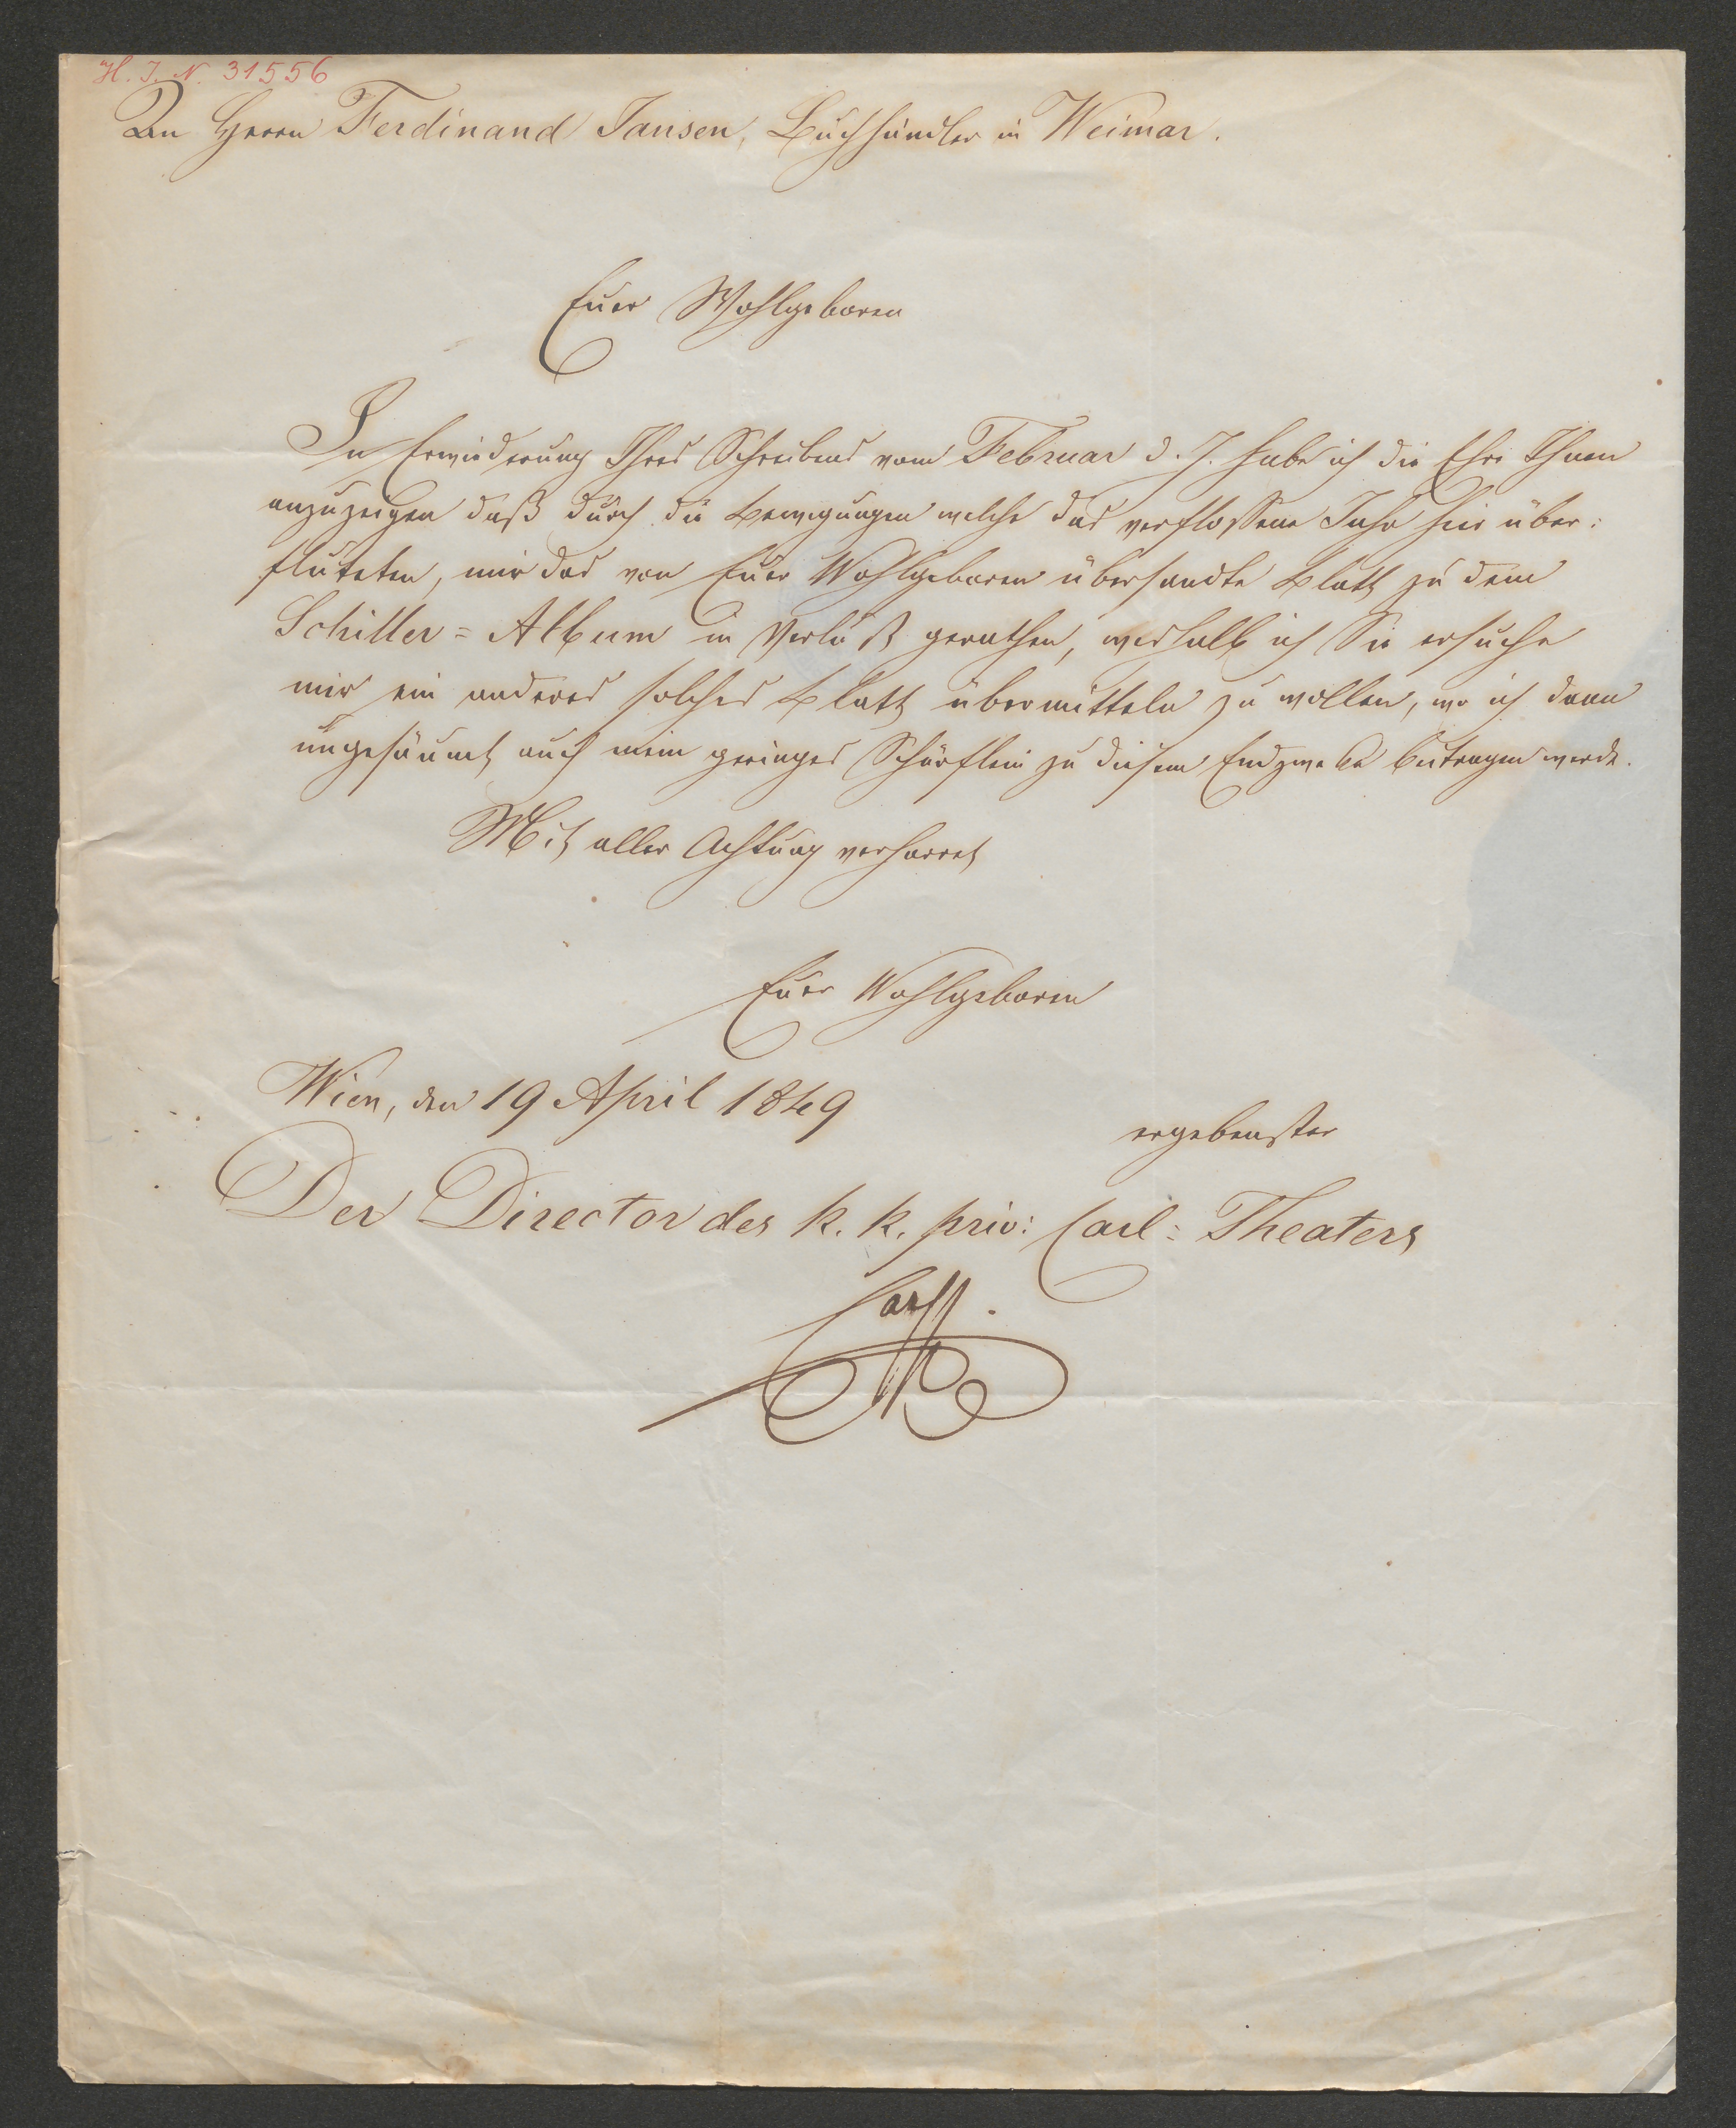 H. I. N. 31556
An Herrn Ferdinand Jansen, Buchhändler in Weimar.
Euer Wohlgeboren
In Erwiederung Ihres Schreibens vom Februar d. J. habe ich die Ehre Ihnen
anzuzeigen daß durch die Bewegungen welche das verflossene Jahr hier über:
fluteten, mir das von Euer Wohlgeboren übersandte Blatt zu dem
Schiller=Album in Verlußt gerathen, weshalb ich Sie ersuche
mir ein anderes solches Blatt übermitteln zu wollen, wo ich dann
ungesäumt auch mein geringes Schärflein zu diesem Endzwecke beitragen werde.
Mit aller Achtung verharret
Euer Wohlgeboren
Wien, den 19 April 1849
ergebenster
Der Director des k. k. priv: Carl=Theaters
Carl.